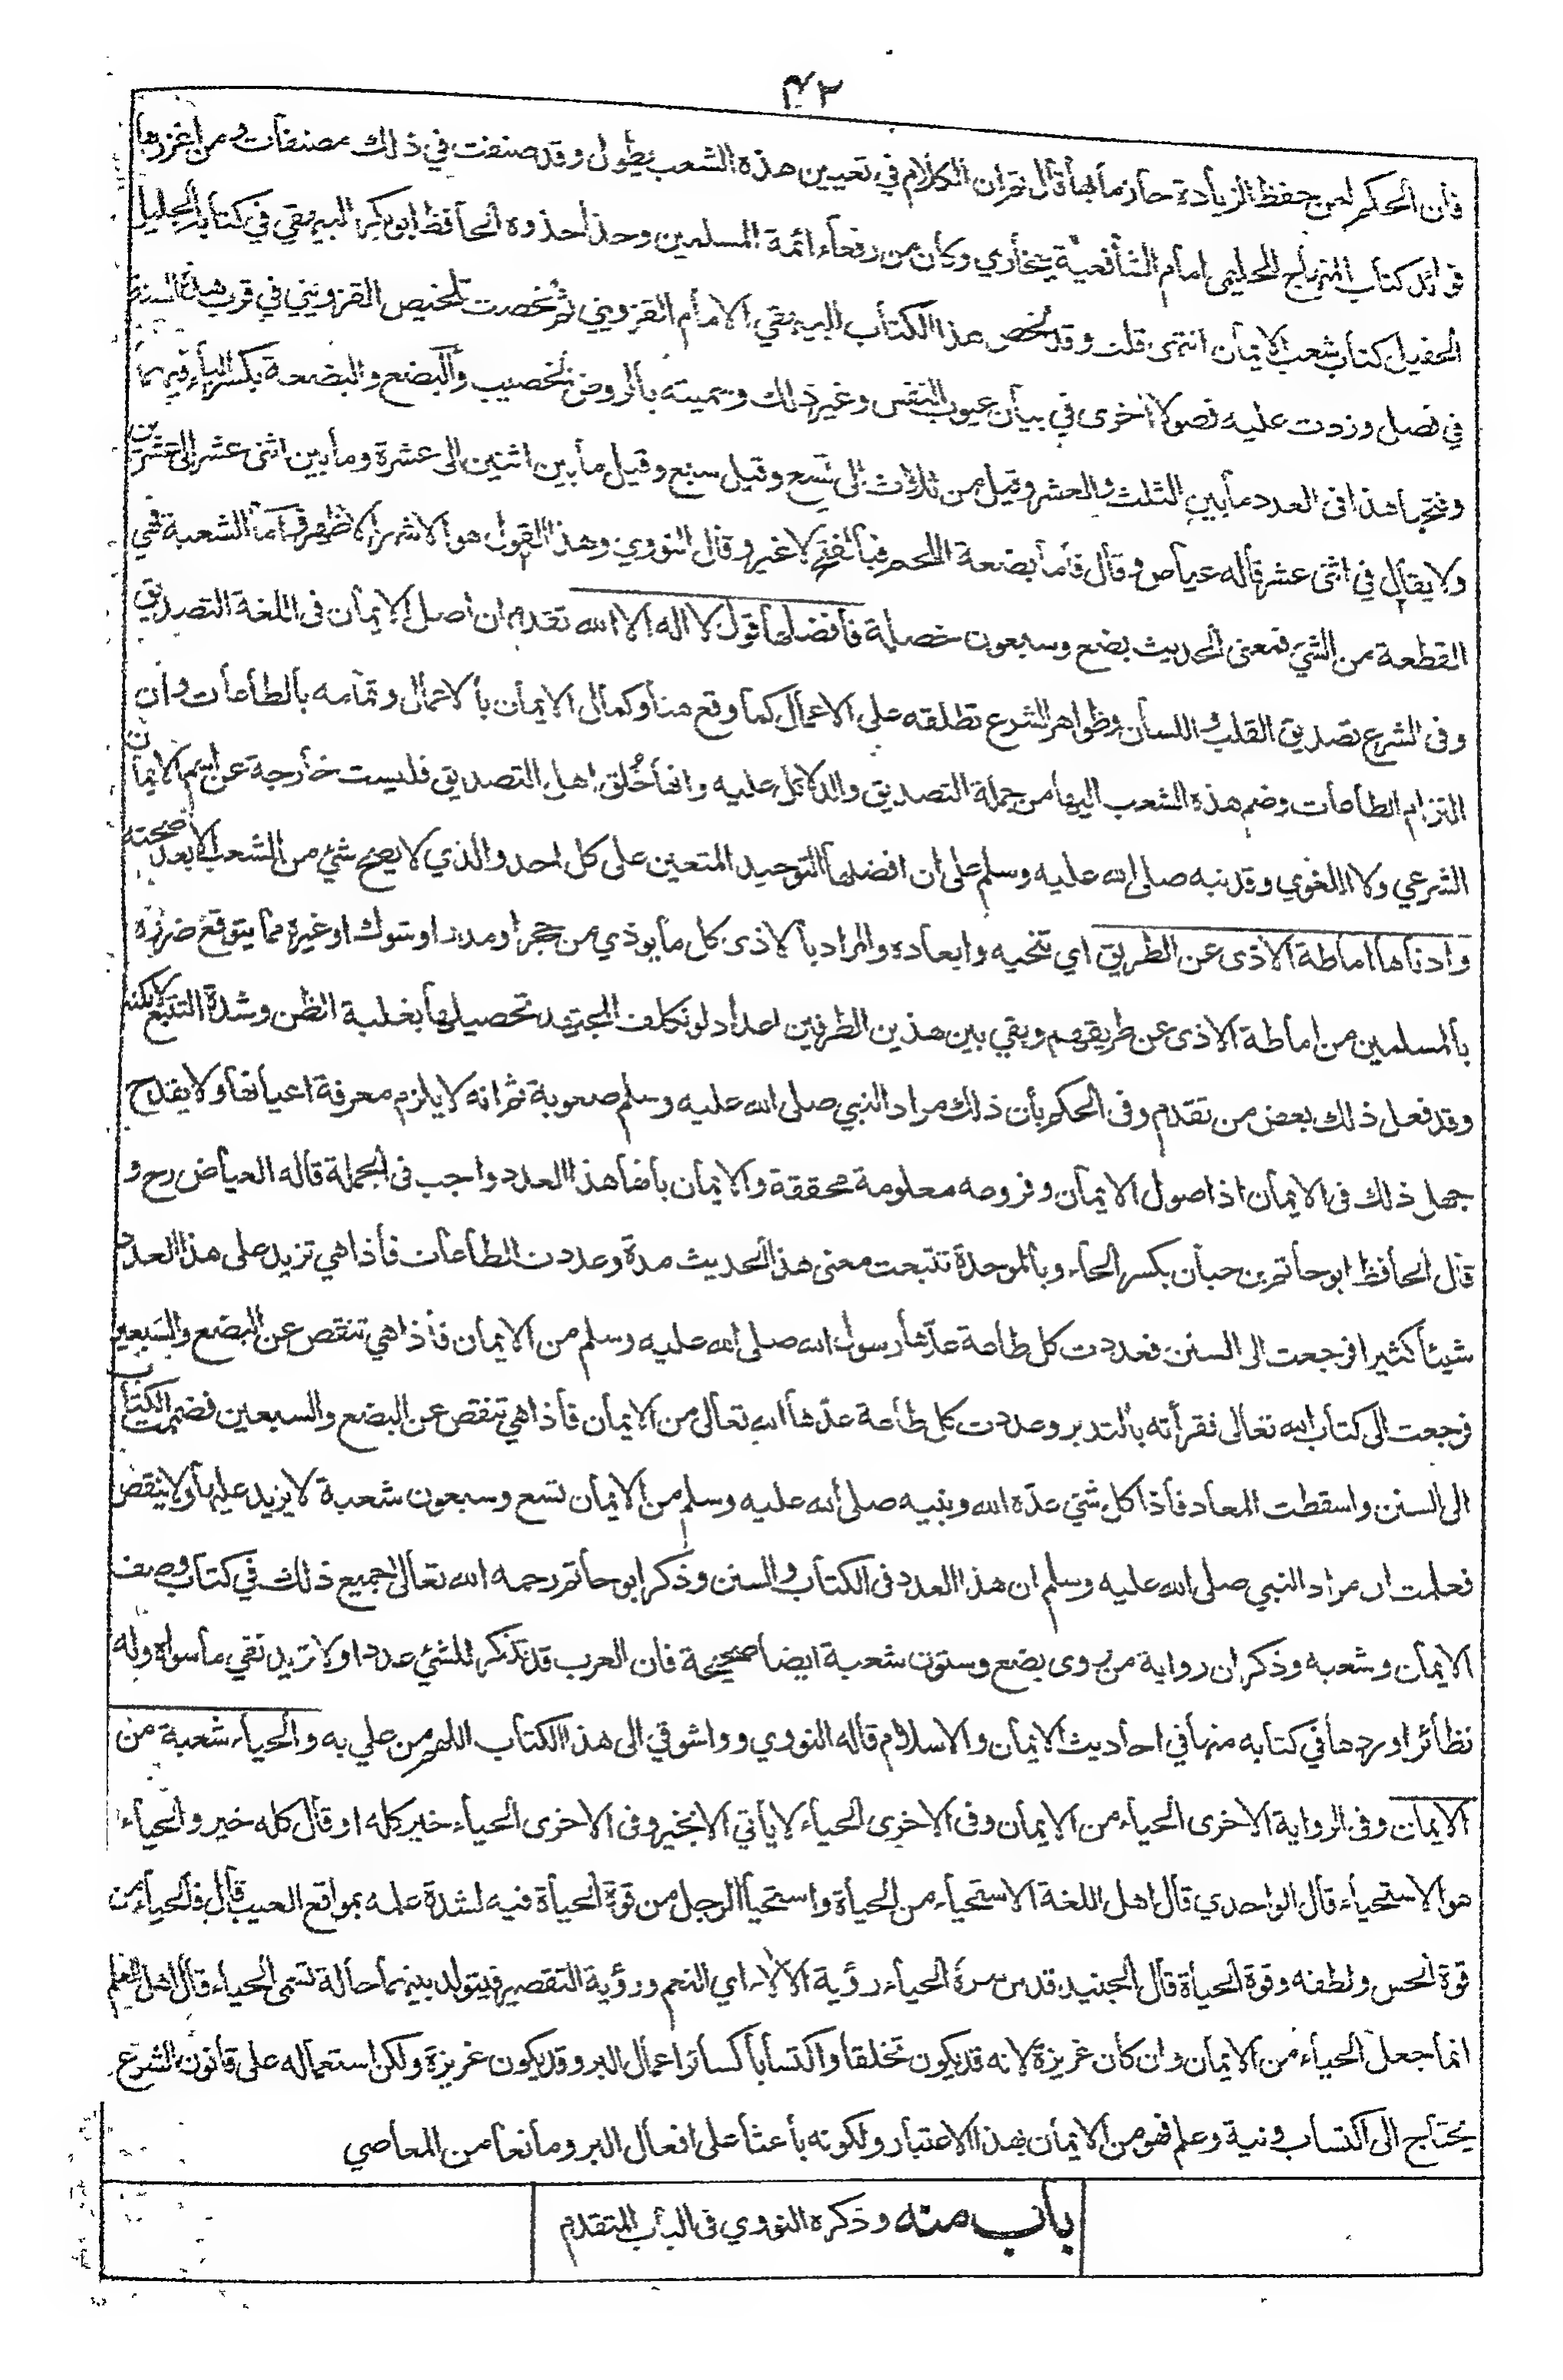 ٤٢
فأن الحكم لمن حفظ الزيادة جأزمأ بهأ قأل ثم ان الكلام في تعيين هذه الشعب يطول وقد صنفت في ذلك مصنفأت ومن اغزرهأ
فوائد كتأب المنهأج للحليمى امأم الشأفعية ببخأري وكأن من رفعأء ائمة المسلمين وحذأ حذوه الحأفظ ابو بكر البيهقي في كتأبه الجليل
الحفيل كتأب شعب الايمأن انتهى قلت وقد لخص هذا الكتأب البيهقي الامأم القزويني ثم لخصت تلخيص القزويني في قرب هذه السنة
في فصل وزدت عليه فصولا أخرى في بيأن عيوب النفس وغير ذلك وسميته بألروض الخصيب والبضع والبضعة بكسر البأء فيهمأ
وفتحهأ هذا فى العدد مأ بين الثلث والعشر وقيل من ثلاث الى تسع وقيل سبع وقيل مأ بين اثنين الى عشرة ومأ بين اثنى عشر الى عشرين
ولا يقأل في اثنى عشر قأله عيأض وقأل فأمأ بضعة اللحم فبألفتح لا غير وقأل النووي وهذا القول هو الاشهر الاظهر فأمأ الشعبة فهي
القطعة من الشئ فمعنى الحديث بضع وسبعون خصلة فأفضلهأ قول لا اله الا الله تقدم ان أصل الايمأن فى اللغة التصديق
وفى الشرع تصديق القلب واللسأن وظواهر الشرع تطلقه على الاعمأل كمأ وقع هنأ وكمأل الايمأن بألاعمأل وتمأمه بألطأعأت وأن
التزام الطأعأت وضم هذه الشعب اليهأ من جملة التصديق والدلائل عليه وانهأ خُلق اهل التصديق فليست خأرجة عن اسم الايمأن
الشرعي ولا اللغوي وقد نبه صلى الله عليه وسلم على ان افضلهأ التوحيد المتعين على كل احد والذي لا يصح شئ من الشعب الا بعد صحته
وادنأهأ امأطة الاذى عن الطريق اي تنحيه وابعأده والمراد بألاذى كل مأ يوذي من حجر او مدر او شوك او غيره ممأ يتوقع ضرره
بألمسلمين من امأطة الاذى عن طريقهم وبقي بين هذين الطرفين اعدأد لو تكلف المجتهد تحصيلهأ بغلبة الظن وشدة التتبع لامكنه
وقد فعل ذلك بعض من تقدم وفى الحكم بأن ذلك مراد النبي صلى الله عليه وسلم صعوبة ثم انه لا يلزم معرفة اعيأنهأ ولا يقدح
جهل ذلك فى الايمأن اذ اصول الايمأن وفروعه معلومة محققة والايمأن بأنهأ هذا العدد واجب فى الجملة قأله العيأض رح و
قأل الحأفظ ابو حأتم بن حبأن بكسر الحأء وبألموحدة تتبعت معنى هذا الحديث مدة وعددت الطأعأت فأذا هي تزيد على هذا العدد
شيئأ كثيرا فرجعت الى السنن فعددت كل طأعة عدّهأ رسول الله صلى الله عليه وسلم من الايمأن فأذا هي تنقص عن البضع والسبعين
فرجعت الى كتأب الله تعألى فقرأته بألتدبر وعددت كل طأعة عدّهأ الله تعألى من الايمأن فأذا هي تنقص عن البضع والسبعين فضممت الكتأب
الى السنن واسقطت المعأد فأذا كل شئ عدّه الله ونبيه صلى الله عليه وسلم من الايمأن تسع وسبعون شعبة لا يزيد عليهأ ولا ينقص
فعلمت ان مراد النبي صلى الله عليه وسلم ان هذا العدد فى الكتأب والسنن وذكر ابو حأتم رحمه الله تعألى جميع ذلك في كتأب وصف
الايمأن وشعبه وذكر ان رواية من روى بضع وستون شعبة ايضأ صحيحة فأن العرب قد تذكر للشئ عددا ولا تريد نفي مأ سواه وله
نظأئر اوردهأ في كتأبه منهأ في احأديث الايمأن والاسلام قأله النووي وواشوقي الى هذا الكتأب اللهم من علي به والحيأء شعبة من
الايمأن وفى الرواية الاخرى الحيأء من الايمأن وفى الاخرى الحيأء لا يأتي الا بخير وفى الاخرى الحيأء خير كله او قأل كله خير والحيأء
هو الاستحيأء قأل الواحدي قأل اهل اللغة الاستحيأء من الحيأة واستحيأ الرجل من قوة الحيأة فيه لشدة علمه بمواقع العيب قأل فألحيأء من
قوة الحس ولطفه وقوة الحيأة قأل الجنيد قدس سره الحيأء رؤية الالاء اي النعم ورؤية التقصير فيتولد بينهمأ حألة تسمى الحيأء قأل اهل العلم
انمأ جعل الحيأء من الايمأن وان كأن غريزة لانه قد يكون تخلقأ واكتسأبأ كسأئر اعمأل البر وقد يكون غريزة ولكن استعمأله على قأنون الشرع
يحتأج الى اكتسأب ونية وعلم فهو من الايمأن بهذا الاعتبأر ولكونه بأعثأ على افعأل البر ومأنعأ من المعأصي
بأب منه وذكره النووي فى البأب المتقدم